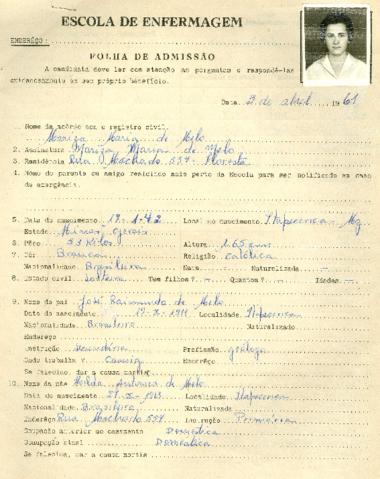 ESCOLA DE ENFERMAGEM
ENDERÊÇO:
FOLHA DE ADMISSÃO
A candidata deve ler com atenção as perguntas e respondê-las
exclusivamente em seu próprio benefício.
Data. 3 de abril 1961
Nome da acôrdo com o registro civil.
Mariza Maria de Melo
2. Assinatura Mariza Maria de Melo
3. Residência Rua Machado 554 - Floresta
4. Nome do parente ou amigo residindo mais perto da Escola para ser notificado em caso
de emergência.
5. Data do nascimento 19-1-42 Local no nascimento Itapecerica Mg
Estado Minas Gerais
6. Pêso 53 kilos Altura 1.65 cms
7. Côr Branca Religião católica
Nacionalidade Brasileira Nata Naturalizada
8. Estado civil solteira Tem filhos? Quantos? Idades
9. Nome do pai José Raimundo de Melo
Data do nascimento 1911 Localidade Itapecerica
Nacionalidade Brasileira Naturalizado
Endereço
Instrução secundária Profissão
Onde trabalha Endereço
Se falecido, dar a causa mortis
10. Nome da mãe Antunes de Melo
Data do nascimento 1913 Localidade Itapecerica
Nacionalidade Brasileira Naturalizada
Endereço Rua Machado 554 Instrução Primária
Ocupação anterior ao casamento Doméstica
Ocupação atual Doméstica
Se falecida, dar a causa mortis